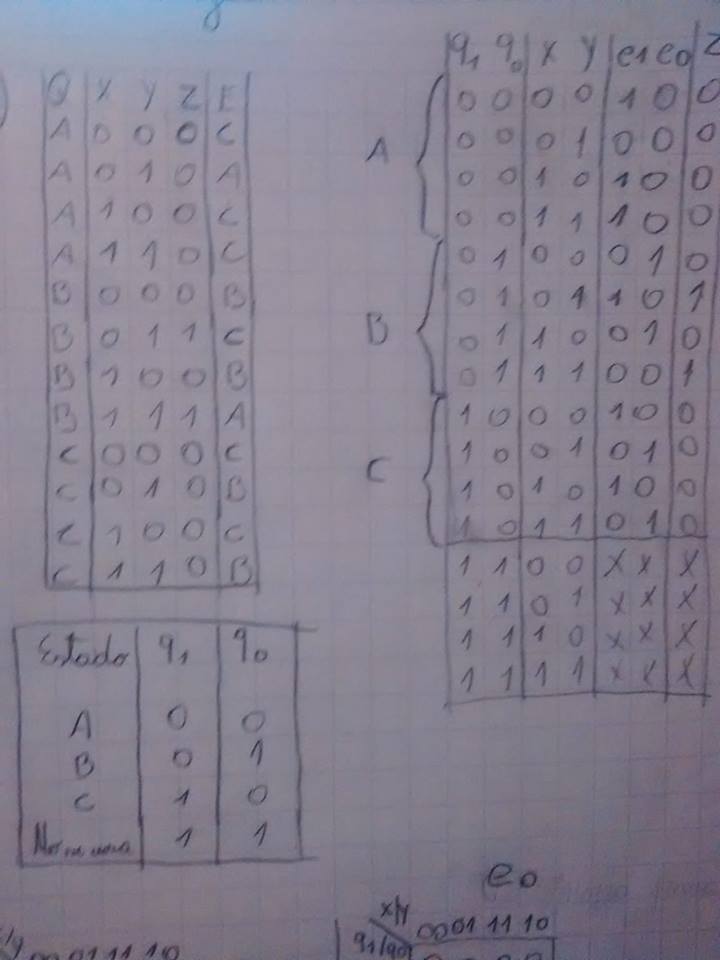 Q X Y Z E
A 0 0 0 C
A 0 1 0 A
A 1 0 0 C
A 1 1 0 C
B 0 0 0 B
B 0 1 1 C
B 1 0 0 B
B 1 1 1 A
C 0 0 0 C
C 0 1 0 B
C 1 0 0 C
C 1 1 0 B
Estado q1 q0
A 0 0
B 0 1
C 1 0
No se usa 1 1
q1 q0 X Y e1 e0 Z
A
0 0 0 0 1 0 0
0 0 0 1 0 0 0
0 0 1 0 1 0 0
0 0 1 1 1 0 0
B
0 1 0 0 0 1 0
0 1 0 1 1 0 1
0 1 1 0 0 1 0
0 1 1 1 0 0 1
C
1 0 0 0 1 0 0
1 0 0 1 0 1 0
1 0 1 0 1 0 0
1 0 1 1 0 1 0
1 1 0 0 X X X
1 1 0 1 X X X
1 1 1 0 X X X
1 1 1 1 X X X
e0
x/y 00 01 11 10
q1/q0
/y 00 01 11 10